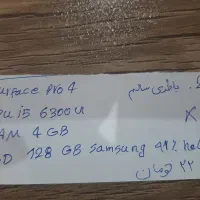 urface Pro 4
PU i5 6300U
AM 4 GB
D 128 GB Samsung 91% hal
باطری سالم
X
۲۲ تومان